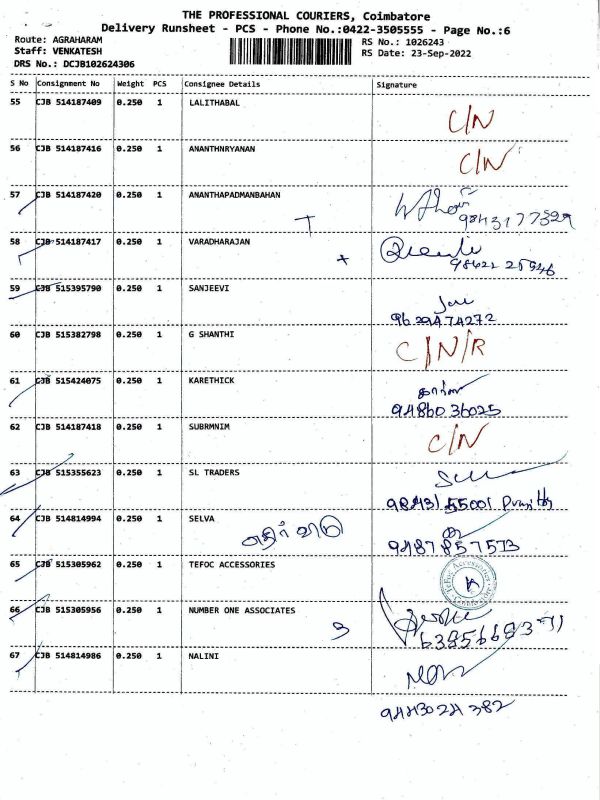 THE PROFESSIONAL COURIERS, Coimbatore
Delivery Runsheet - PCS - Phone No.:0422-3505555 - Page No.:6
Route: AGRAHARAM
Staff: VENKATESH
DRS No.: DCJB102624306
RS No.: 1026243
RS Date: 23-Sep-2022
S No Consignment No Weight PCS Consignee Details Signature
55 CJB 514187409 0.250 1 LALITHABAL C/N
56 CJB 514187416 0.250 1 ANANTHNRYANAN C/N
57 CJB 514187420 0.250 1 ANANTHAPADMANBAHAN
T
58 CJB 514187417 0.250 1 VARADHARAJAN
59 CJB 515395790 0.250 1 SANJEEVI
9629474272
60 CJB 515382798 0.250 1 G SHANTHI C/N/R
61 CJB 515424075 0.250 1 KARETHICK
9486036025
62 CJB 514187418 0.250 1 SUBRMNIM C/N
63 CJB 515355623 0.250 1 SL TRADERS
9843155001
64 CJB 514814994 0.250 1 SELVA
எதிர் வீடு
9487857513
65 CJB 515305962 0.250 1 TEFOC ACCESSORIES
66 CJB 515305956 0.250 1 NUMBER ONE ASSOCIATES
3
67 CJB 514814986 0.250 1 NALINI
9443024382